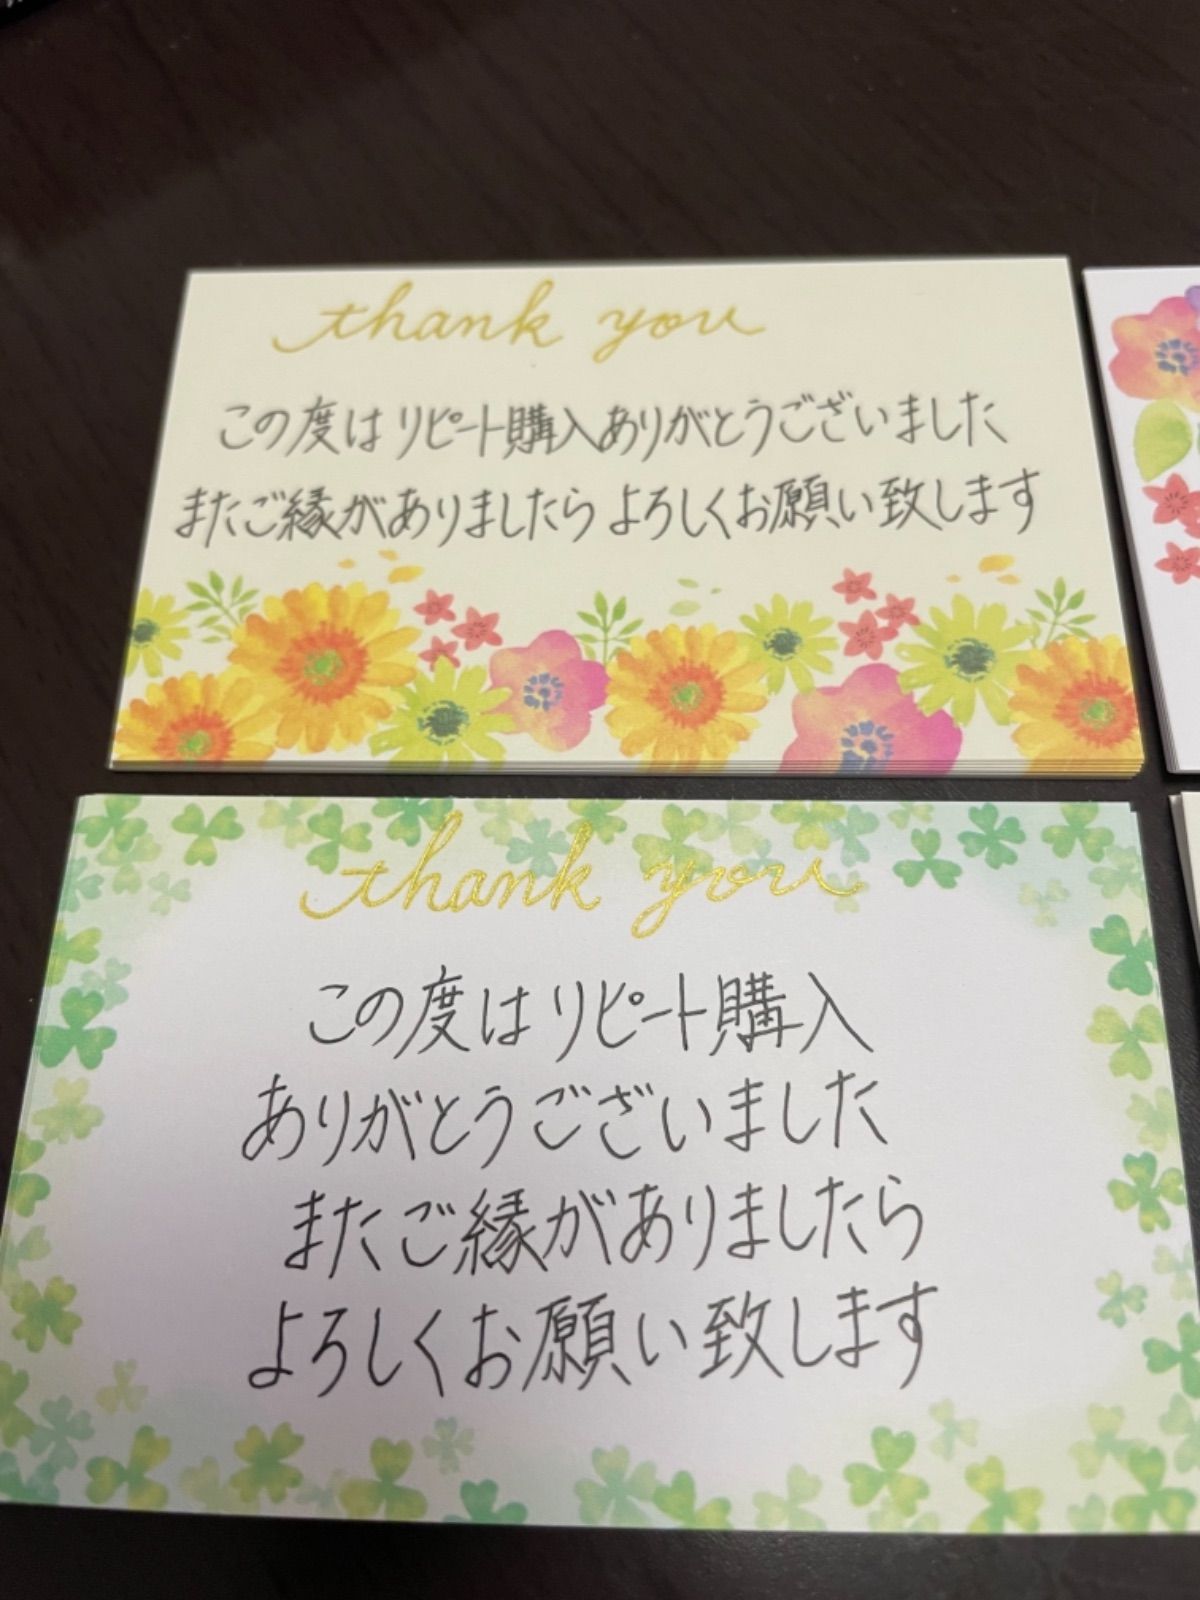 thank you
この度は リピート購入ありがとうございました
またご縁がありましたら よろしくお願い致します
thank you
この度は リピート購入
ありがとうございました
またご縁がありましたら
よろしくお願い致します